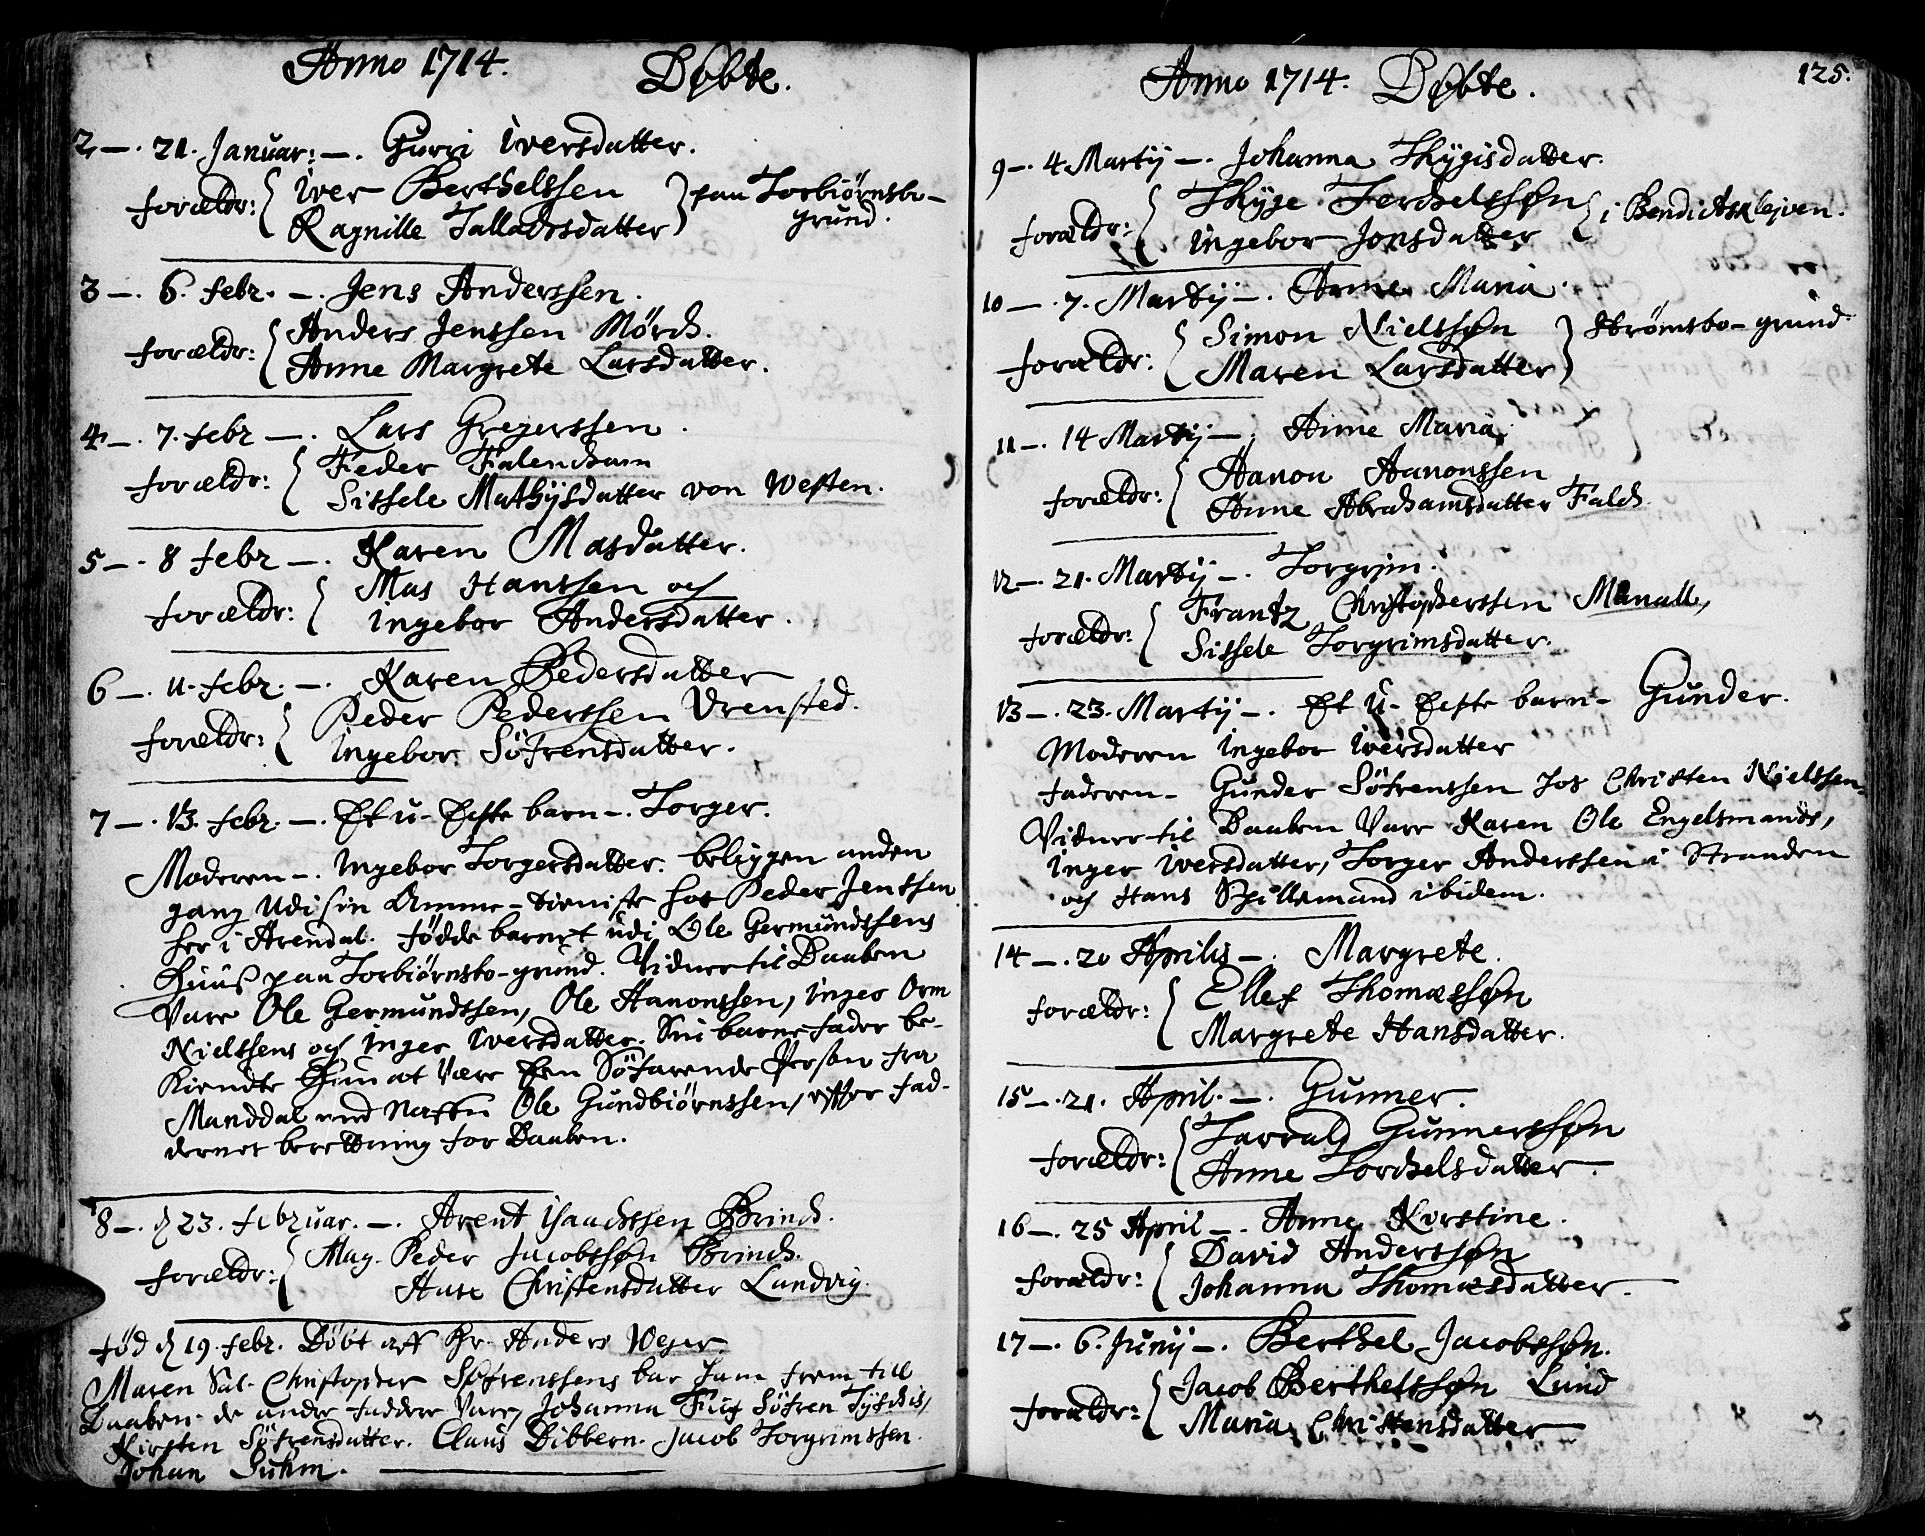 Anno 1714. Døbte.
2 —. 21. Januar: —. Gurri Iversdatter.
forældr: { Iver Berthelssen } paa Torbiørnsbo-
Ragnille Talladsdatter grund.
3 —. 6. febr. —. Jens Anderssen.
forældr: { Anders Jenssen Mörch.
Anne Margrete Larsdatter.
4 —. 7. febr —. Lars Gregerssen.
forældr: { Feder Falencham
Sissele Mathijsdatter von Westen.
5 —. 8 febr —. Karen Masdatter.
forældr: { Mas Hanssen och
Ingebor Andersdatter.
6 —. 11. febr. —. Karen Pedersdatter
forældr: { Peder Pederssen Vrensted.
Ingebor Söfrensdatter.
7 —. 13. febr. —. Et u-Eckte barn —. Torger.
Moderen —. Ingebor Torgersdatter. beliggen anden
gang udi sin Amme-tieniste hos Peder Jenssen
her i Arendal. fødde barnet udi Ole Germundssens
Huuß paa Torbiørnsbo-grund. Vidner til Daaben
Vare Ole Germundssen, Ole Hanonssen, Inger Orm
Nielssens och Inger Iversdatter. Sin barne-fader be-
kiendte Hun at Være Een Söfarende Person fra
Manddal ved Naffn Ole Gundbiørnssen, efter fad-
dernes berettning for Daaben.
8 —. d 23. februar. —. Arent Isaachssen Brinch.
forældr: { Mag. Peder Jacobssøn Brinch.
Aase Christensdatter Lundvig.
fød d 19. febr. Döbt aff Hr. Anders Wejer.
Maren Sal. Christopher Söfrenssens bar ham frem till
Daaben. de andre faddere Vare, Johanna Fuxs Söfren Tyschis,
Kirsten Söfrensdatter. Claus Dibbern. Jacob Torgrimssen.
Johan Suhm.
Anno 1714. Døbte. 125.
9 —. 4 Martij —. Johanna Thygisdatter.
forældr: { Thyge Ferchelssøn } i Bendictsklejven.
Ingebor Jonsdatter
10 —. 7. Martij —. Anne Maria.
forældr: { Simon Nielssøn } Strømsbo-grund.
Maren Larsdatter
11 —. 14 Martij —. Anne Maria.
forældr: { Hanon Hanonssen
Anne Abrahamsdatter Falch.
12 —. 21. Martij —. Torgrim.
forældr: { Frantz Christopherssen Manall,
Sissele Torgrimsdatter.
13 —. 23. Martij —. Et u-Eckte barn — Gunder.
Moderen Ingebor Iversdatter
faderen — Gunder Söfrenssen hos Christen Nielssen.
Vidner til Daaben Vare Karen Ole Engelsmands,
Inger Iversdatter, Torger Anderssen i Stranden
och Hans Spillemand ibidem.
14 —. 20 Aprilis —. Margrete.
forældr: { Ellef Thomæssøn
Margrete Hansdatter.
15 —. 21. April. —. Gunner.
forældr: { Tarrald Gunnerssøn
Anne Torchelsdatter.
16 —. 25 April —. Anne Kirstine.
forældr: { David Anderssøn
Johanna Thomæsdatter.
17 —. 6. Junij —. Berthel Jacobssøn.
forældr: { Jacob Berthelssøn Lund
Maria Christensdatter